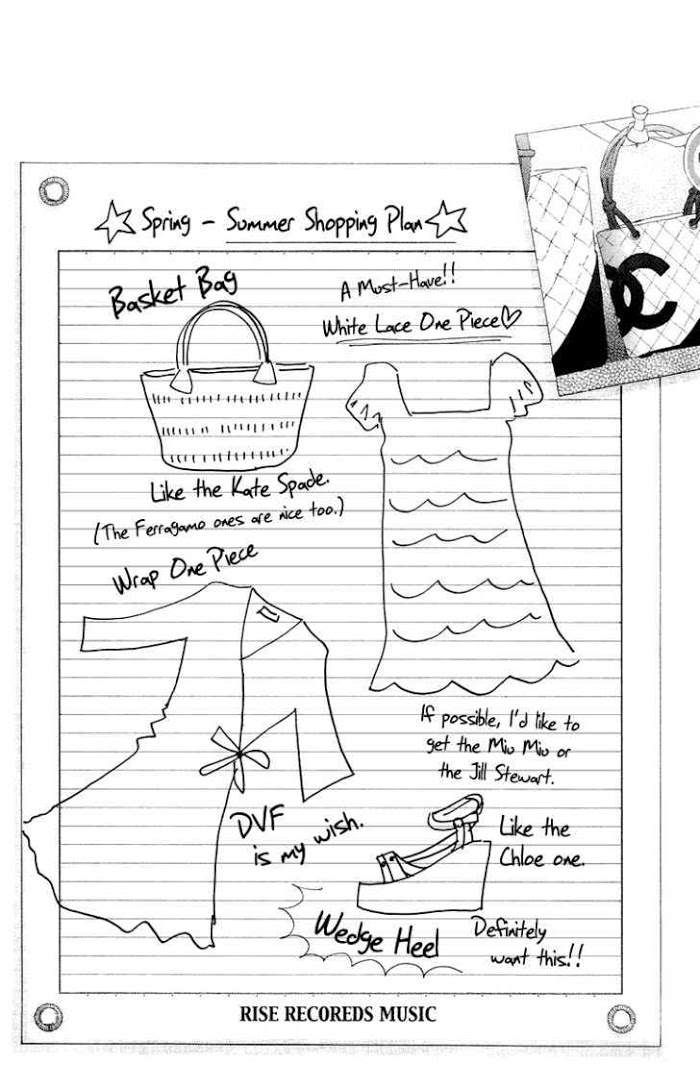 ☆ Spring - Summer Shopping Plan ☆
Basket Bag
A Must-Have!!
White Lace One Piece♡
Like the Kate Spade.
(The Ferragamo ones are nice too.)
Wrap One Piece
If possible, I'd like to
get the Miu Miu or
the Jill Stewart.
DVF
is my wish.
Like the
Chloe one.
Wedge Heel
Definitely
want this!!
RISE RECOREDS MUSIC